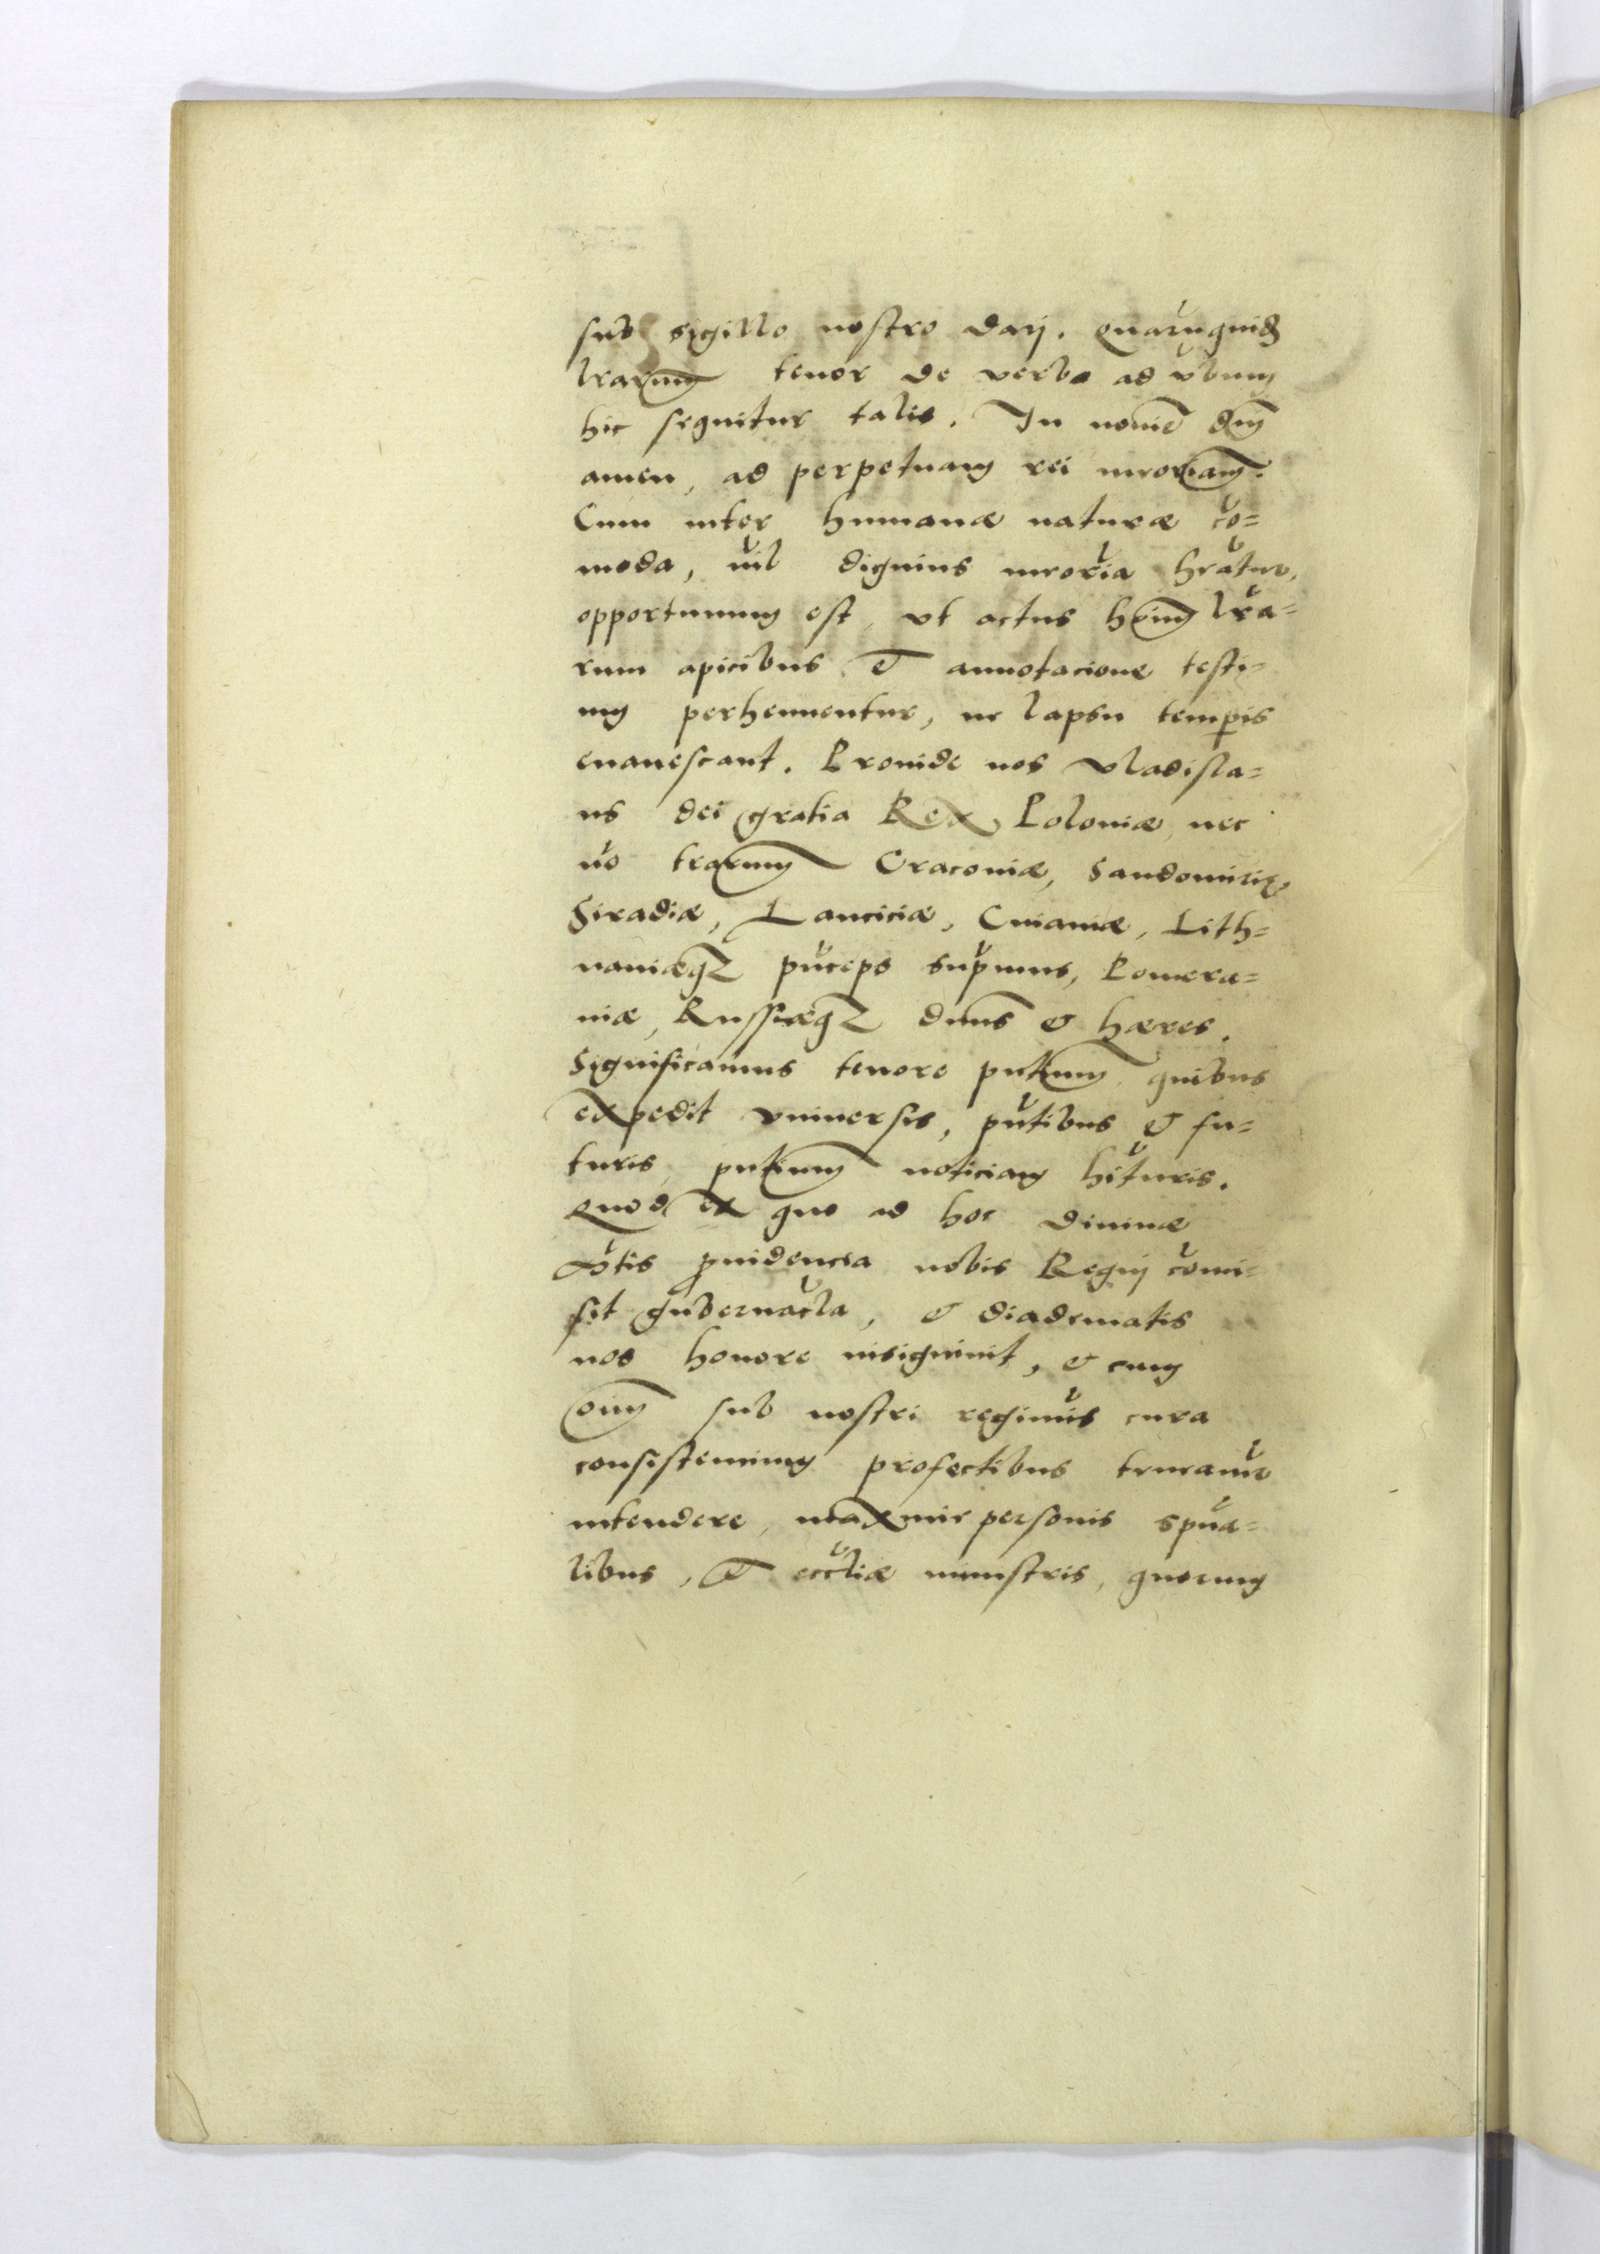 sub sigillo nostro darj. Quarūquid
lrarum tenor de verbo ad vbum
hic sequitur talis. In nomie dni
amen, ad perpetuam rei mroriam.
Cum inter humanæ naturæ cō=
moda, nil dignius mroria hratur,
opportunum est, vt actus hoim lra=
rum apicibus et annotacione testi=
um perhennentur, ne lapsu temp̄is
euanescant. Prouide nos Vladisla=
us dei gratia Rex Poloniæ, nec
nō trarum Cracouiæ, Sandomiriæ,
Siradiæ, Lanciciæ, Cuiauiæ, Lith=
vaniæq3 pn̄ceps sup̄mus, Pomera=
niæ, Russiæq3 dnus & hæres.
Significamus tenore pntium, quibus
expedit vniuersis, pn̄tibus & fu=
turis, pntium noticiam hituris.
Quod ex quo ad hoc diuinæ
prouidencia nobis Regnj cōmi=
sit gubernac̄la, & diadematis
nos honore insigniuit, & cum
oim sub nostri regimis cura
consistencium profectibus
intendere, maxime personis spua=
libus, et eccliæ ministris, quorum